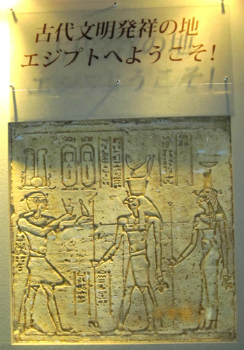 古代文明発祥の地
エジプトへようこそ!